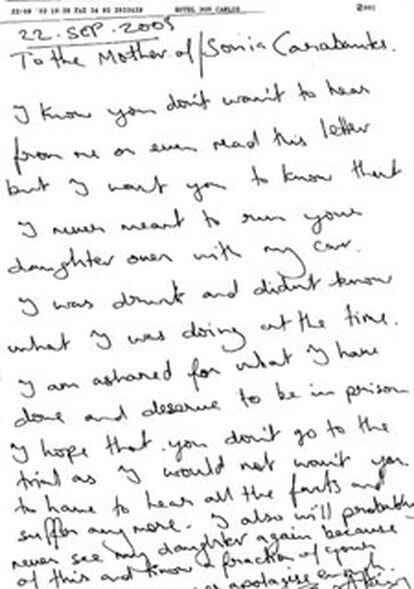 HOTEL DON CARLOS
22. SEP. 2003
To the Mother of Sonia Carabantes.
I know you don't want to hear
from me or even read this letter
but I want you to know that
I never meant to run your
daughter over with my car.
I was drunk and didn't know
what I was doing at the time.
I am ashared for what I have
done and deserve to be in prison
I hope that you don't go to the
trial as I would not want you
to have to hear all the facts and
suffer any more. I also will probably
never see my daughter again because
of this and know a fraction of your
apologise enough.